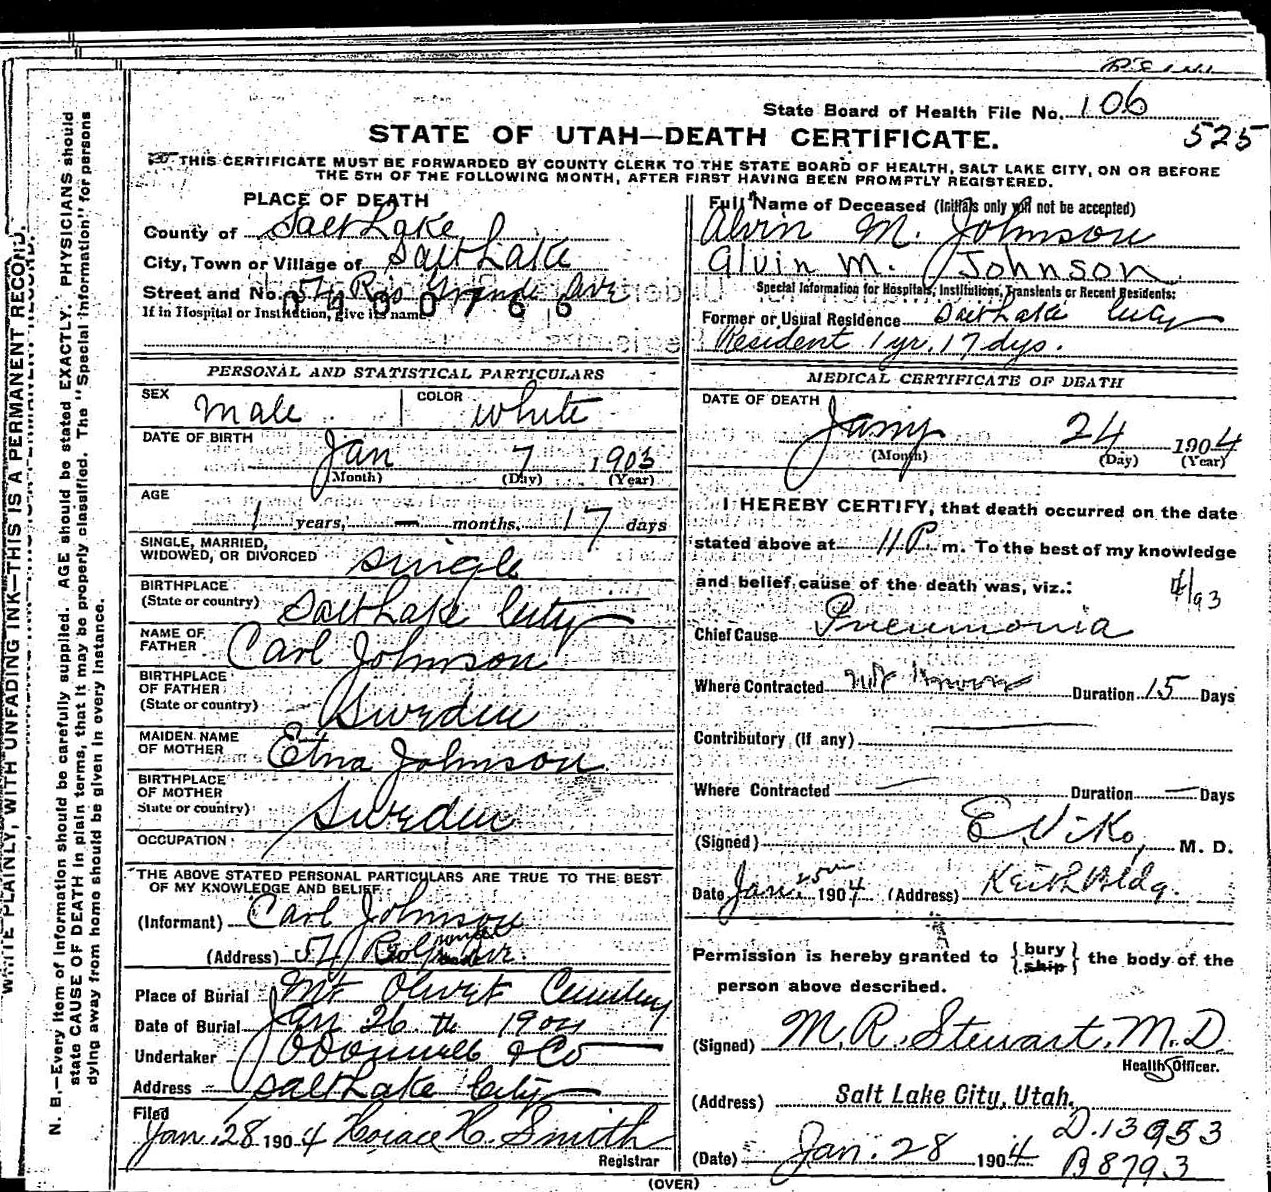 State Board of Health File No. 106
525
STATE OF UTAH—DEATH CERTIFICATE.
THIS CERTIFICATE MUST BE FORWARDED BY COUNTY CLERK TO THE STATE BOARD OF HEALTH, SALT LAKE CITY, ON OR BEFORE
THE 5TH OF THE FOLLOWING MONTH, AFTER FIRST HAVING BEEN PROMPTLY REGISTERED.
WRITE PLAINLY, WITH UNFADING INK—THIS IS A PERMANENT RECORD.
N. B.—Every item of information should be carefully supplied. AGE should be stated EXACTLY. PHYSICIANS should
state CAUSE OF DEATH in plain terms, that it may be properly classified. The "Special Information" for persons
dying away from home should be given in every instance.
PLACE OF DEATH
County of Salt Lake
City, Town or Village of Salt Lake
Street and No. 54 Rio Grande Ave
If in Hospital or Institution, give its name
PERSONAL AND STATISTICAL PARTICULARS
SEX Male COLOR White
DATE OF BIRTH
Jan 7 1903
(Month) (Day) (Year)
AGE
1 years, — months, 17 days
SINGLE, MARRIED,
WIDOWED, OR DIVORCED single
BIRTHPLACE
(State or country) Salt Lake City
NAME OF
FATHER Carl Johnson
BIRTHPLACE
OF FATHER
(State or country) Sweden
MAIDEN NAME
OF MOTHER Etna Johnson
BIRTHPLACE
OF MOTHER
State or country) Sweden
OCCUPATION
THE ABOVE STATED PERSONAL PARTICULARS ARE TRUE TO THE BEST
OF MY KNOWLEDGE AND BELIEF
(Informant) Carl Johnson
(Address) 54 Rio Grande Ave.
Place of Burial Mt Olivet Cemetery
Date of Burial Jan 26 th 1904
Undertaker O'Donnell & Co
Address Salt Lake City
Filed
Jan. 28 1904 Horace H. Smith
Registrar
Full Name of Deceased (Initials only will not be accepted)
Alvin M. Johnson
Alvin M. Johnson
Special Information for Hospitals, Institutions, Transients or Recent Residents:
Former or Usual Residence Salt Lake City
Resident 1 yr. 17 dys.
MEDICAL CERTIFICATE OF DEATH
DATE OF DEATH
Jany 24 1904
(Month) (Day) (Year)
I HEREBY CERTIFY, that death occurred on the date
stated above at 11 P. m. To the best of my knowledge
and belief, cause of the death was, viz.:
93
Chief Cause Pneumonia
Where Contracted not known Duration 15 Days
Contributory (If any)
Where Contracted — Duration — Days
(Signed) E Viko, M. D.
Date Jan 25 1904 (Address) Keith Bldg.
Permission is hereby granted to {bury ship} the body of the
person above described.
(Signed) M. R. Stewart, M. D.
Health Officer.
(Address) Salt Lake City, Utah.
D. 13953
(Date) Jan. 28 1904 B 8793
(OVER)